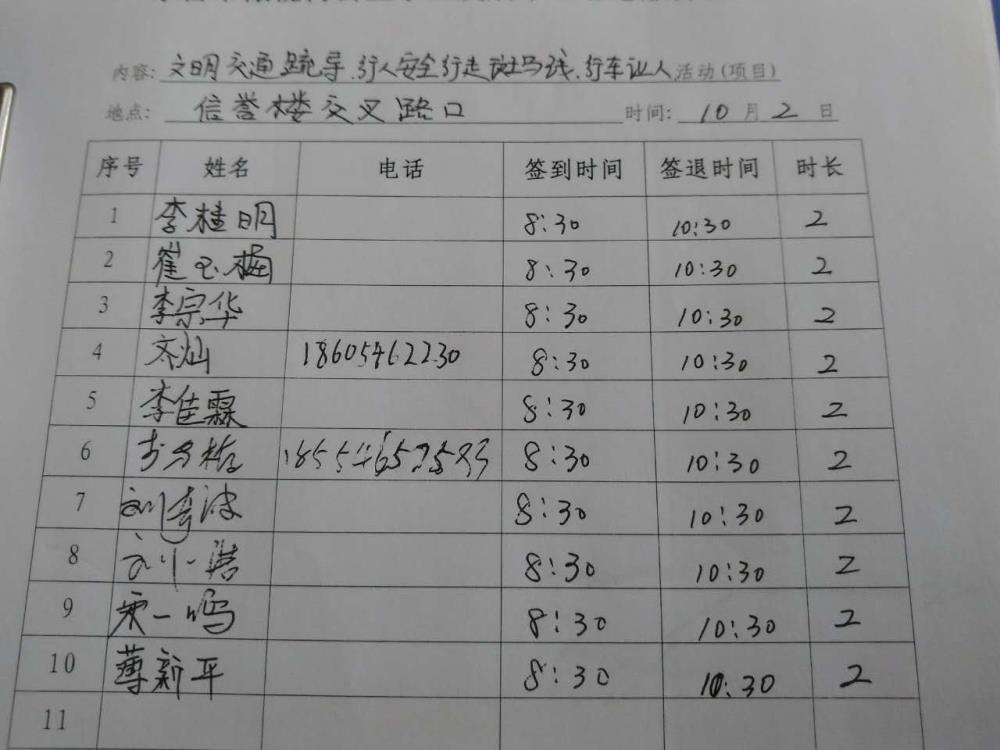 内容: 文明交通疏导.行人安全行走斑马线.行车让人 活动(项目)
地点: 信誉楼交叉路口 时间: 10月2日
序号 姓名 电话 签到时间 签退时间 时长
1 李桂明 8:30 10:30 2
2 崔玉梅 8:30 10:30 2
3 李宗华 8:30 10:30 2
4 18605462230 8:30 10:30 2
5 李佳霖 8:30 10:30 2
6 8:30 10:30 2
7 8:30 10:30 2
8 8:30 10:30 2
9 宋一鸣 8:30 10:30 2
10 薄新平 8:30 10:30 2
11